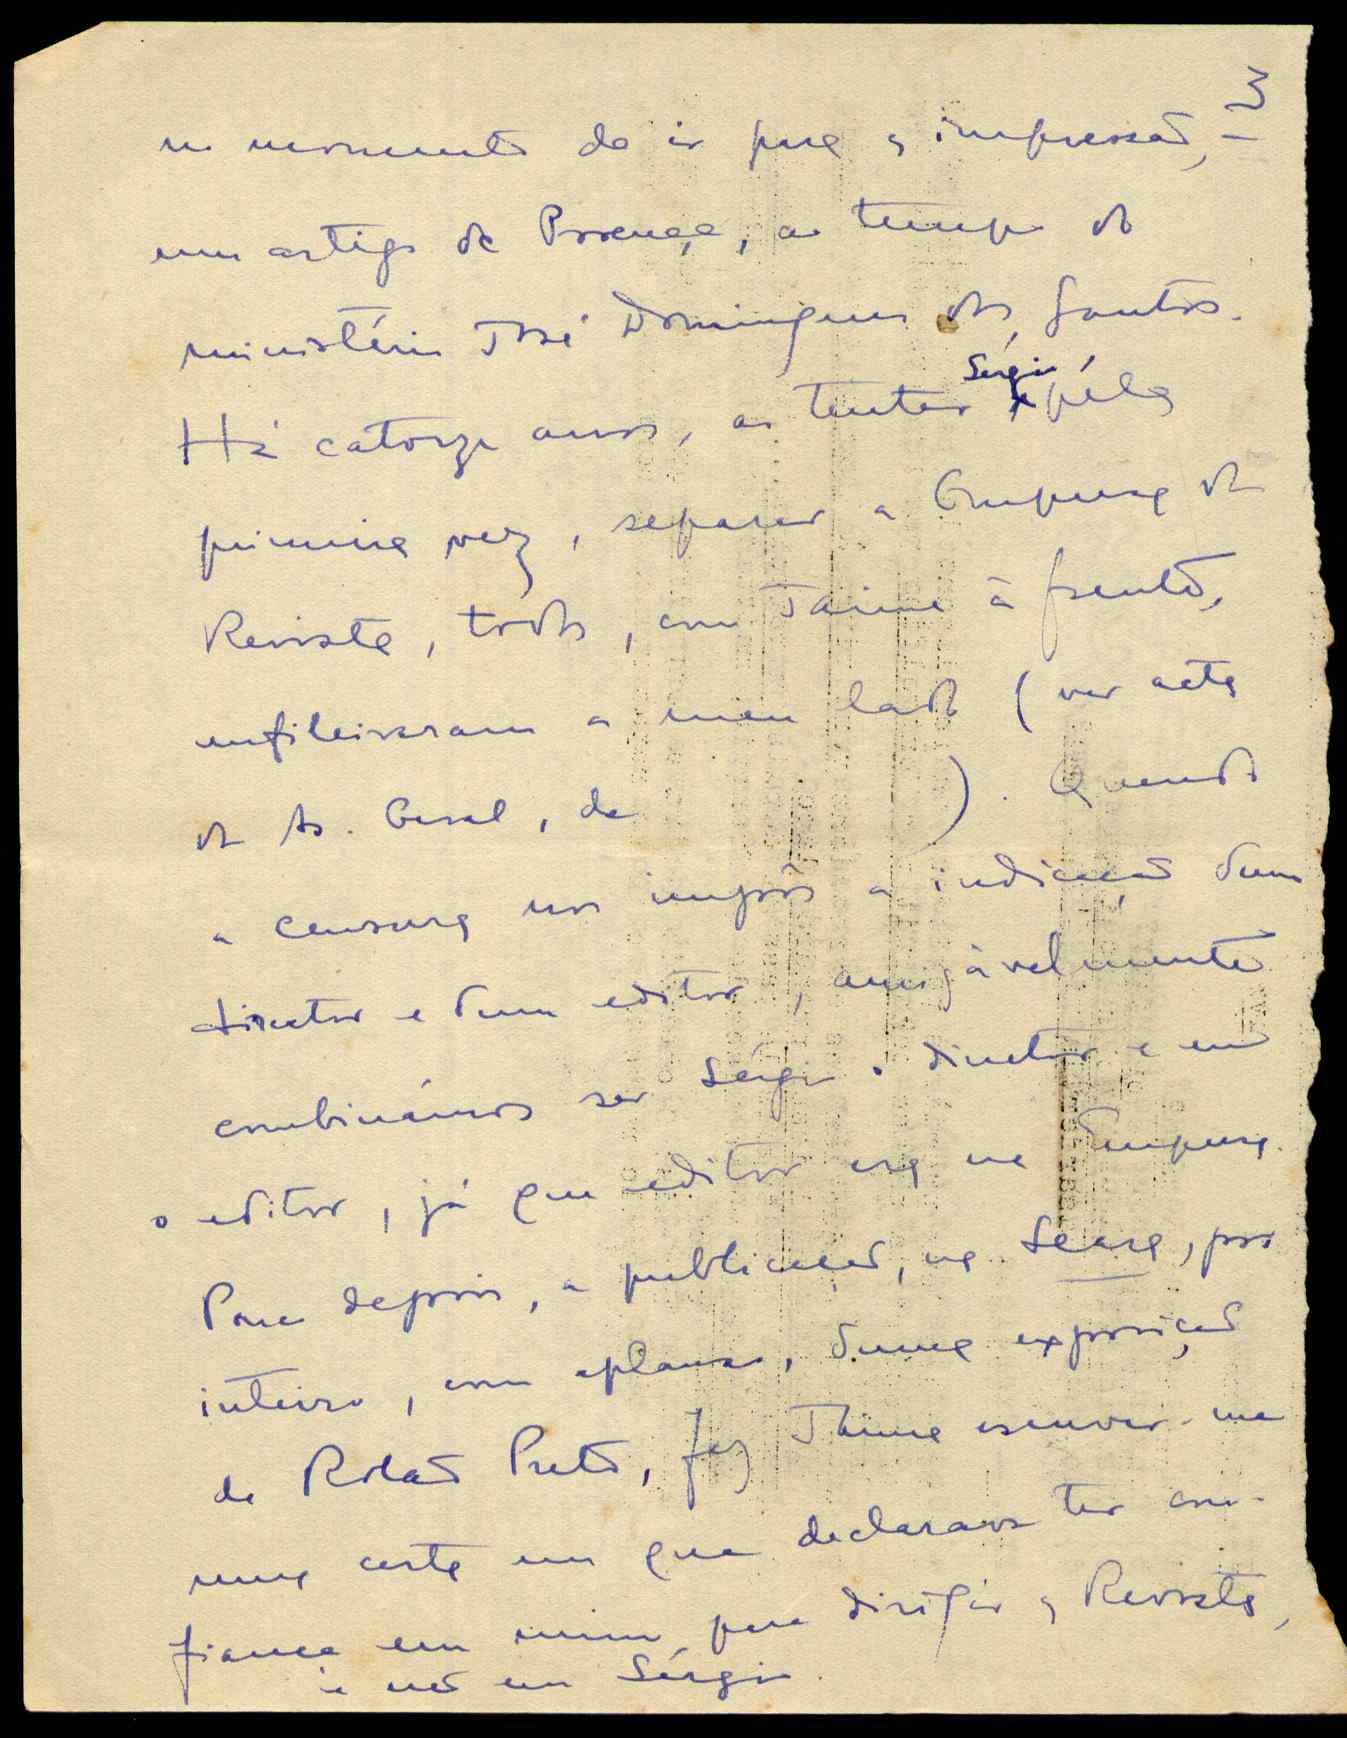 3
no momento de ir para a impressão,
um artigo de Proença, ao tempo do
ministério José Domingues dos Santos.
Há catorze anos, ao tentar Sérgio, pela
primeira vez, separar a Empresa da
Revista, todos, com Jaime à frente,
enfileiraram a meu lado (ver acta
da As. Geral, de        ). Quando
a censura nos impôs a indicação dum
director e dum editor, amigàvelmente
combinámos ser Sérgio o director e eu
o editor, já que editor era na Empresa.
Pouco depois, a publicação, na Seara, por
inteiro, com aplauso, duma exposição
de Rolão Preto, fez Jaime escrever-me
uma carta em que declarava ter con-
fiança em mim, para dirigir a Revista,
e não em Sérgio.